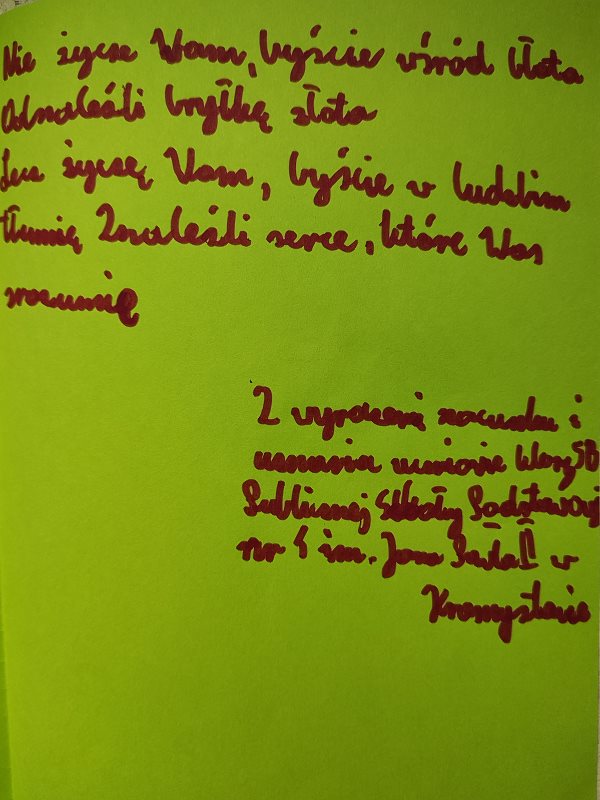 Nie życze Wam, byście wśród błota
Odnaleźli bryłkę złota
Lecz życzę Wam, byście w ludzkim
tłumię Znaleźli serce, które Was
zrozumię
Z wyrazami szacunku i
uznania uczniowie klasy 5B
Publicznej Szkoły Podstawowej
nr 5 im. Jana Pawła II w
Krasnystawie